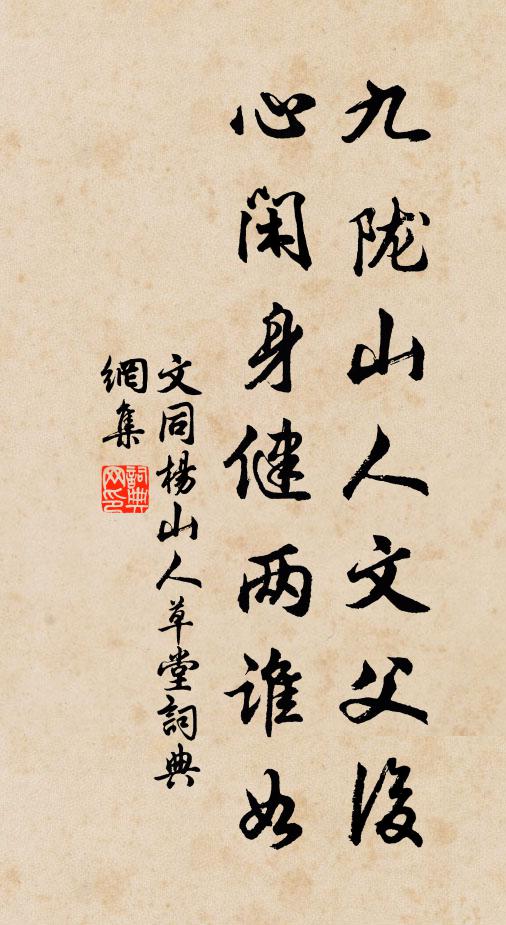 九陇山人文父後
心闲身健两谁如
文同楊山人草堂詞典
網集
詞典
网印